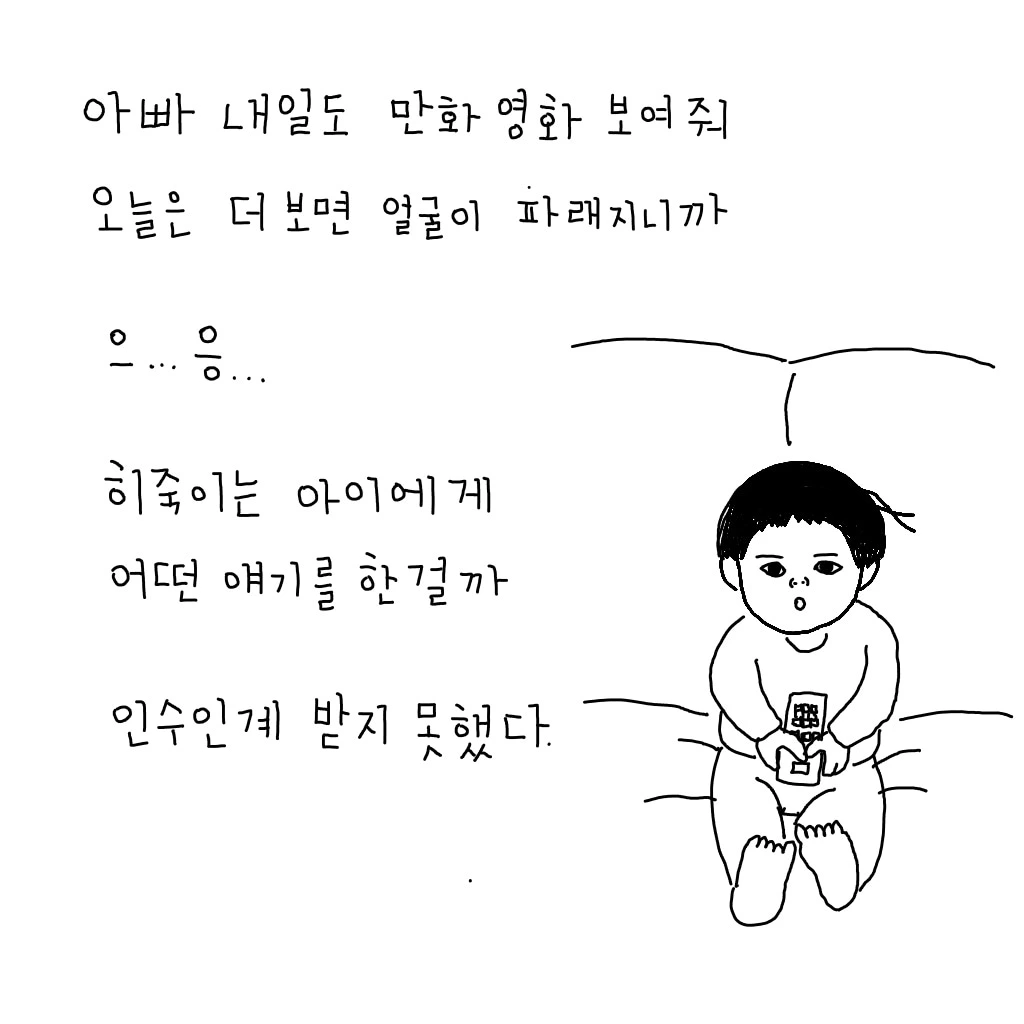 아빠 내일도 만화영화 보여줘
오늘은 더 보면 얼굴이 파래지니까
으...응...
히죽이는 아이에게
어떤 얘기를 한걸까
인수인계 받지 못했다.